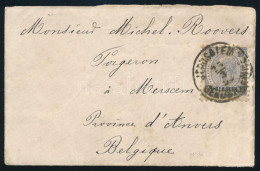 Monsieur Michel Roovers
Forgeron
à Merxem
Province d'Anvers
Belgique